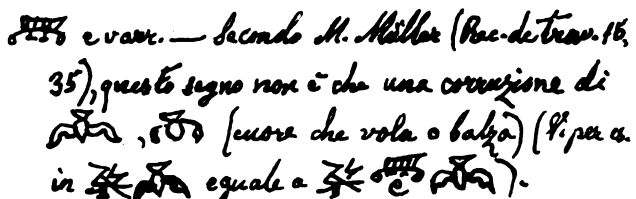 e varr. — Secondo M. Müller (Rec. de trav. 16,
35), questo segno non è che una corruzione di
, (cuore che vola o balza) (V. per es.
in eguale a ).